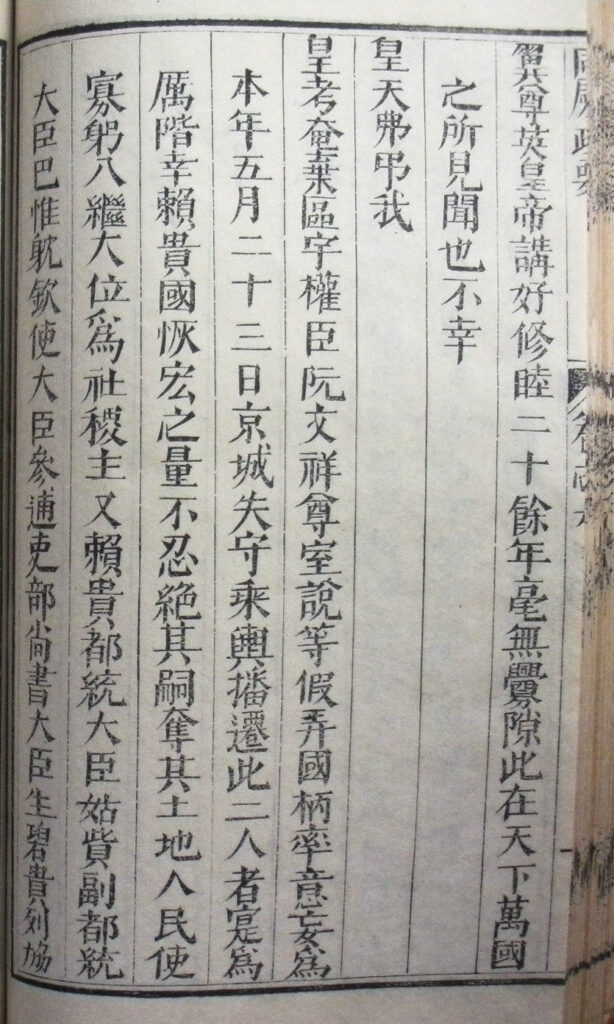 尊英皇帝講好修睦二十餘年毫無釁隙此在天下萬國
之所見聞也不幸
皇天弗弔我
皇考奄棄區宇權臣阮文祥尊室說等假弄國柄率意妄為
本年五月二十三日京城失守乘輿播遷此二人者寔為
厲階幸賴貴國恢宏之量不忍絶其嗣奪其土地人民使
寡躬入繼大位爲社稷主又賴貴都統大臣姑貲副都統
大臣巴惟躭欽使大臣參逋吏部尚書大臣生碧貴列協